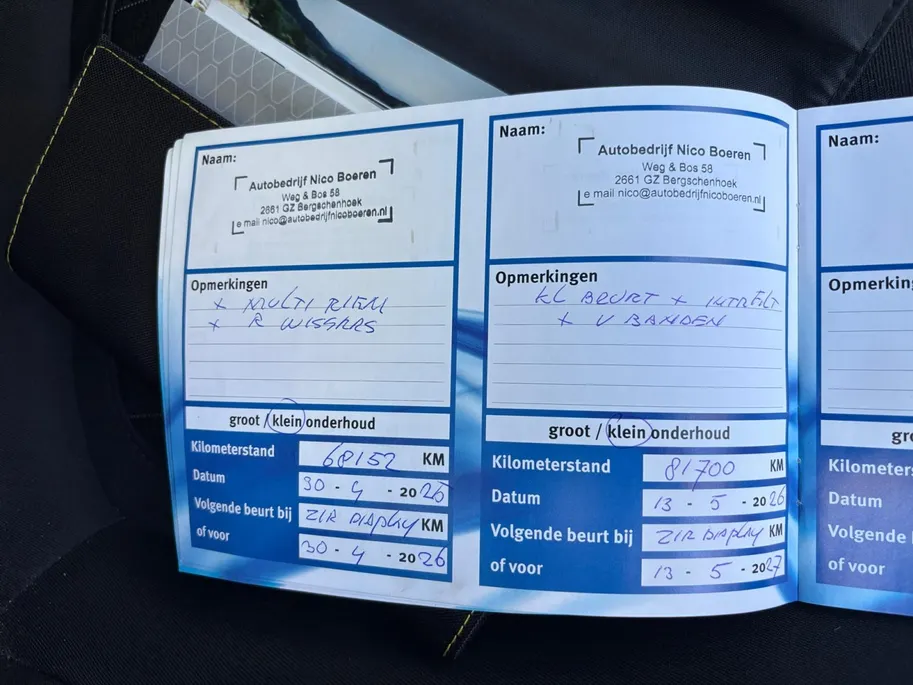 Naam:
Autobedrijf Nico Boeren
Weg & Bos 58
2661 GZ Bergschenhoek
e mail nico@autobedrijfnicoboeren.nl
Opmerkingen
x MULTI RIEM
x R WISSERS
groot / klein onderhoud
Kilometerstand 68152 KM
Datum 30 - 4 - 2025
Volgende beurt bij ZIR DISPLAY KM
of voor 30 - 4 - 2026
Naam:
Autobedrijf Nico Boeren
Weg & Bos 58
2661 GZ Bergschenhoek
e mail nico@autobedrijfnicoboeren.nl
Opmerkingen
KL BEURT x INTR FILT
x V BANDEN
groot / klein onderhoud
Kilometerstand 81700 KM
Datum 13 - 5 - 2026
Volgende beurt bij ZIR DISPLAY KM
of voor 13 - 5 - 2027
Naam:
Opmerking
gro
Kilometers
Datum
Volgende b
of voor